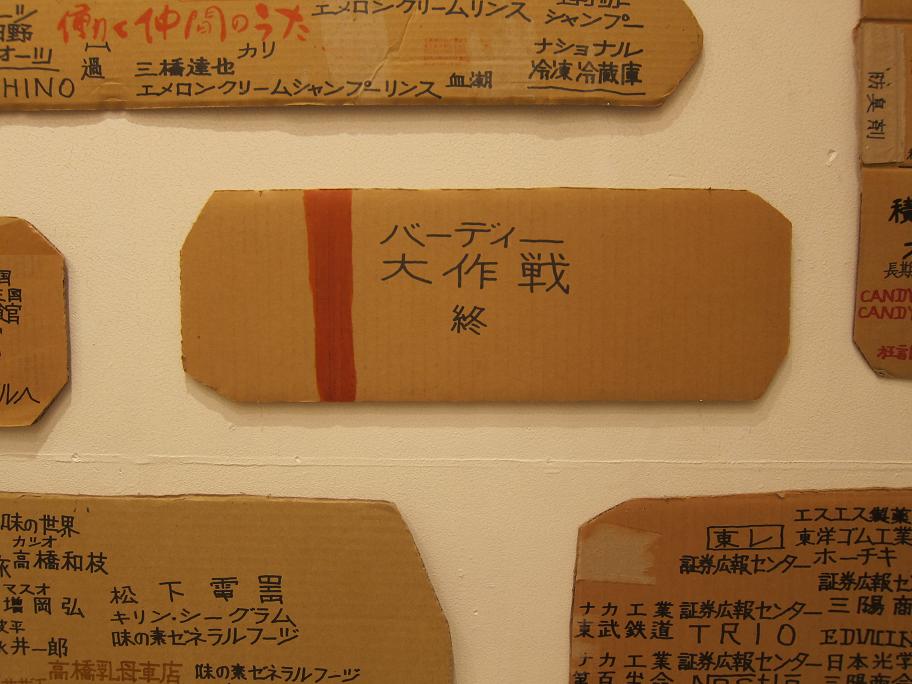 働く仲間のうた
エメロンクリームリンス
シャンプー
日野
オーツ
過
カリ
ナショナル
三橋達也
血潮
冷凍冷蔵庫
HINO
エメロンクリームシャンプーリンス
防臭剤
バーディー
大作戦
終
国
館
ルへ
積
長期
CANDY
CANDY
狂言
味の世界
カツオ
高橋和枝
マスオ
増岡弘
松下電器
キリン・シーグラム
波平
永井一郎
味の素ゼネラルフーヅ
高橋乳母車店
味の素ゼネラルフーヅ
エスエス製薬
東レ
東洋ゴム工業
証券広報センター
ホーチキ
証券広報セ
ナカ工業
証券広報センター
三陽商
東武鉄道
TRIO
EDWIN
ナカ工業
証券広報センター
日本光学
第百生命
三陽商会